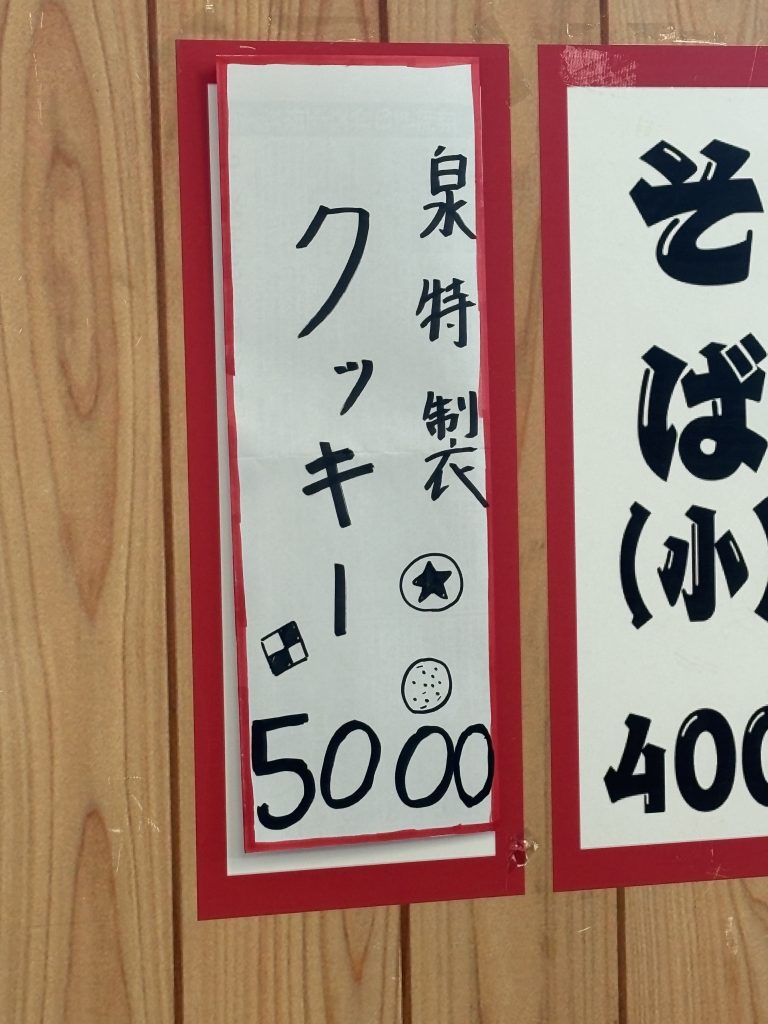 泉特製
クッキー
5000
そば(小)
400